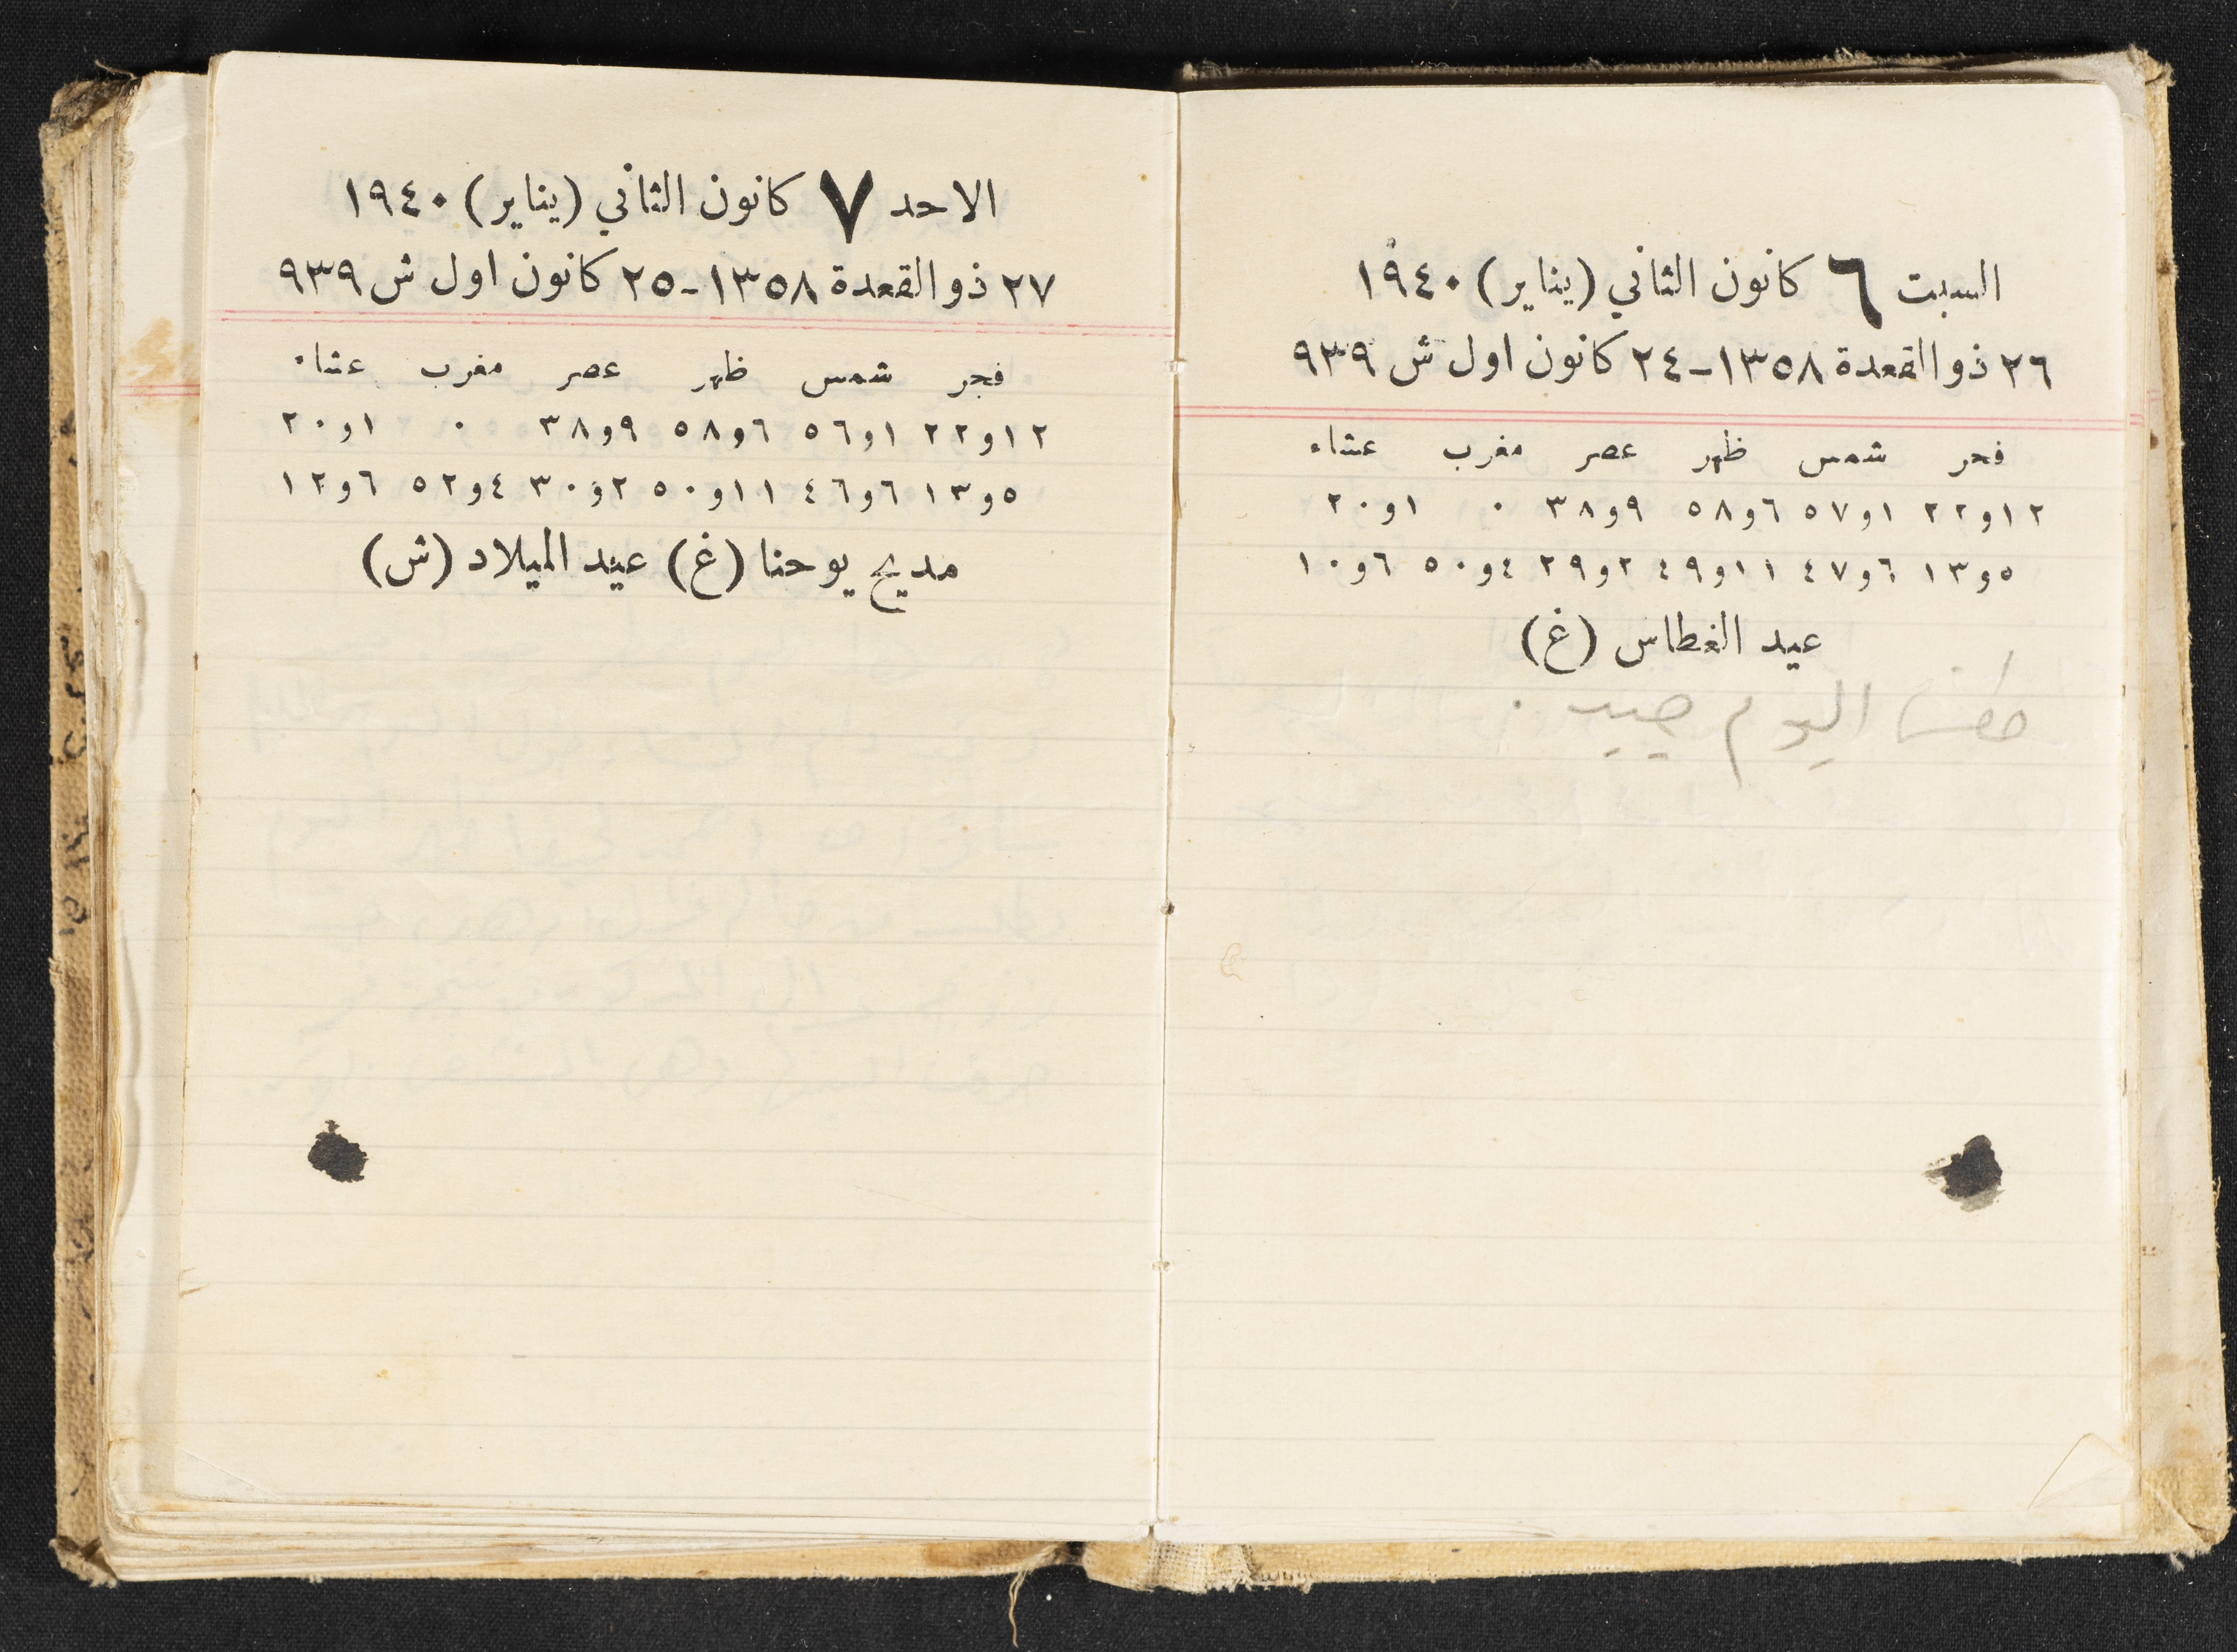 السبت ٦ كانون الثاني (يناير) ١٩٤٠
٢٦ ذو القعدة ١٣٥٨ـ٢٤ كانون اول ش ٩٣٩
فجر شمس ظهر عصر مغرب عشاء
١٢و٢٢ ١و٥٧ ٦و٥٨ ٩و٣٨ ٠ ١و٢٠
٥و١٣ ٦و٤٧ ١١و٤٩ ٢و٢٩ ٤و٥٠ ٦و١٠
عيد الغطاس (غ)
اليوم
الاحد ٧ كانون الثاني (يناير) ١٩٤٠
٢٧ ذو القعدة ١٣٥٨ـ٢٥ كانون اول ش ٩٣٩
فجر شمس ظهر عصر مغرب عشاء
١٢و٢٢ ١و٥٦ ٦و٥٨ ٩و٣٨ ٠ ١و٢٠
٥و١٣ ٦و٤٦ ١١و٥٠ ٢و٣٠ ٤و٥٢ ٦و١٢
مديح يوحنا (غ) عيد الميلاد (ش)